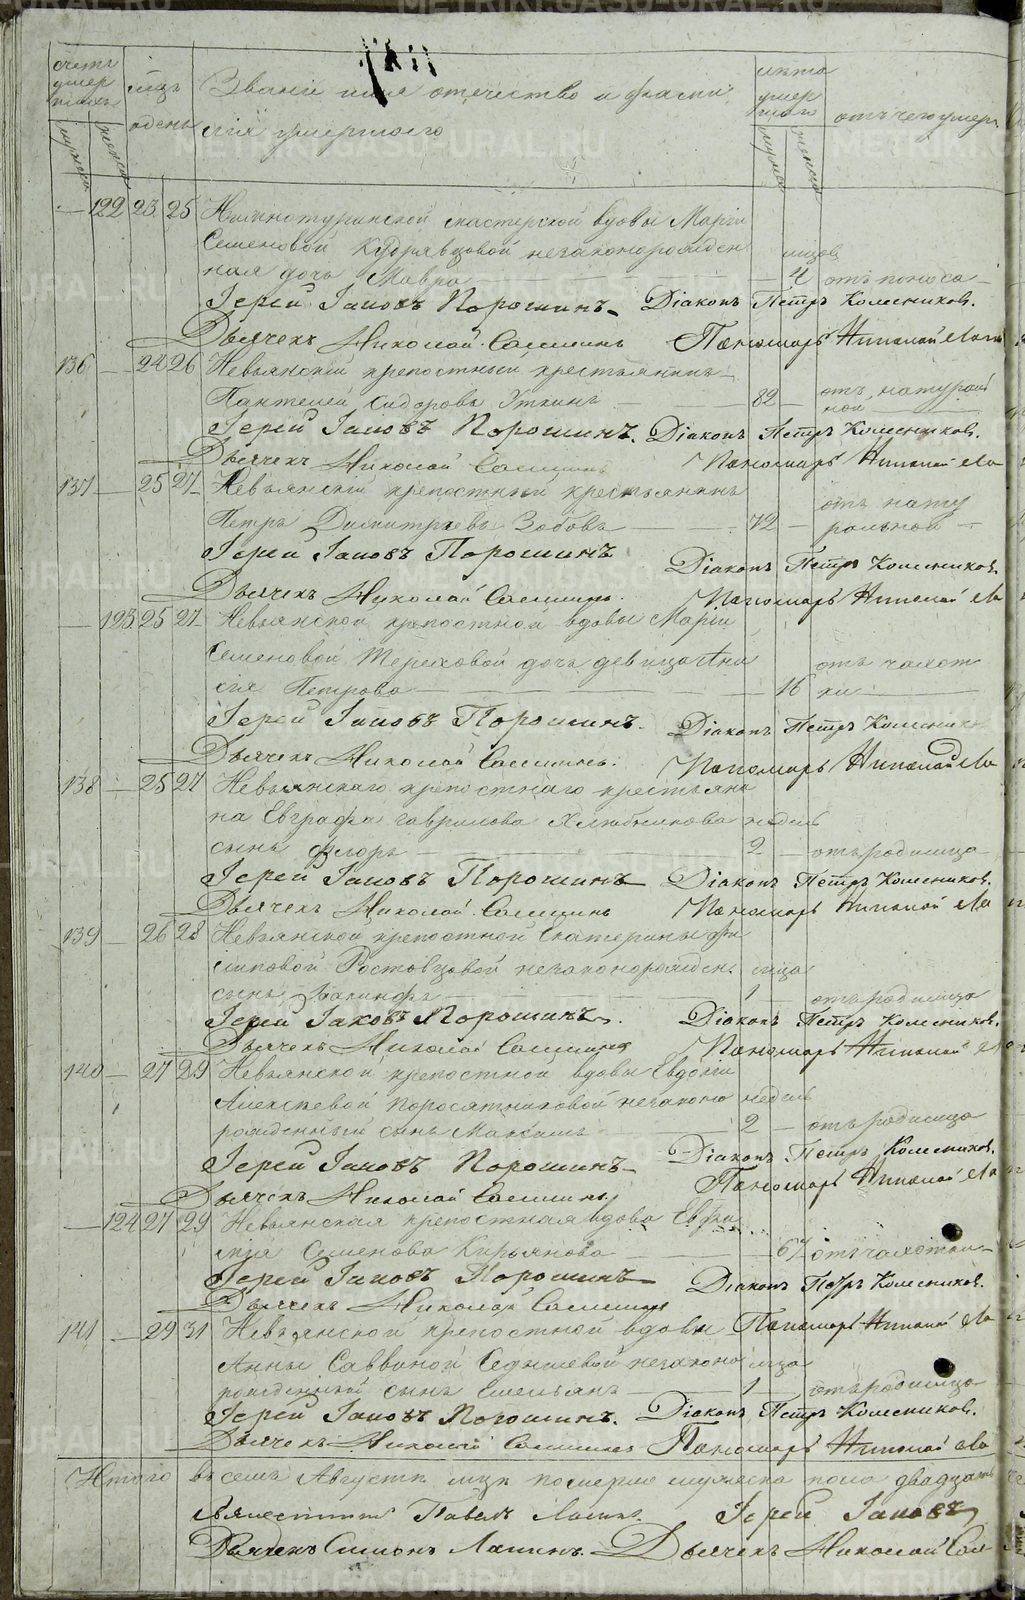 счетъ умер шихъ
мцъ и день
Званіе имя отечество и фами
лія умершаго
лѣта умер шаго
отъ чего умеръ
мужеска женска
мужеска женска
— 122 23 25 Нижнотуринской мастерской вдовы Маріи
Семеновой Кудрявцовой незаконорожден
ная дочь Мавра — месяцов 4 отъ поноса
Іерей Іаковъ Порошинъ Діаконъ Петръ Колесниковъ.
Дьячекъ Николай Пономарь Николай
136 — 24 26 Невьянскій крепостный крестьянинъ
Пантелей Сидоровъ Уткинъ — 82 — отъ натураль
ной
Іерей Іаковъ Порошинъ. Діаконъ Петръ Колесниковъ.
Дьячекъ Николай Пономарь Николай
137 — 25 27 Невьянскій крепостный крестьянинъ
Петръ Димитріевъ Зобовъ — 72 — отъ нату
ральной —
Іерей Іаковъ Порошинъ
Діаконъ Петръ Колесниковъ.
Дьячекъ Николай Пономарь Николай
— 123 25 27 Невьянской крепостной вдовы Маріи
Семеновой Тереховой дочь девица Ани
сія Петрова — 16 отъ чахот
ки
Іерей Іаковъ Порошинъ. Діаконъ Петръ Колесников
Дьячекъ Николай Пономарь Николай
138 — 25 27 Невьянскаго крепостнаго крестьяни
на Евграфа Гаврилова Хлюбникова недель
сынъ Флоръ — 2 — отъ родимца
Іерей Іаковъ Порошинъ Діаконъ Петръ Колесниковъ.
Дьячекъ Николай Пономарь Николай
139 — 26 28 Невьянской крепостной Екатерины Фи
липовой Ростовцовой незаконорожден мца
сынъ — 1 — отъ родимца
Іерей Іаковъ Порошинъ. Діаконъ Петръ Колесниковъ.
Дьячекъ Николай Пономарь Николай
140 — 27 29 Невьянской крепостной вдовы Евдокіи
Алексеевой Поросятниковой незаконо недель
рожденный сынъ Максимъ — 2 — отъ родимца
Іерей Іаковъ Порошинъ Діаконъ Петръ Колесниковъ.
Дьячекъ Николай Пономарь Николай
— 124 27 29 Невьянская крепостная вдова Евфи
мія Семенова Кирьянова — 67 отъ чахотки
Іерей Іаковъ Порошинъ Діаконъ Петръ Колесниковъ.
Дьячекъ Николай
141 — 29 31 Невьянской крепостной вдовы Пономарь Николай
Анны Саввиной Седышевой незаконо мца
рожденной сынъ Емельянъ — 1 — отъ родимца
Іерей Іаковъ Порошинъ. Діаконъ Петръ Колесниковъ.
Дьячекъ Николай Пономарь Николай
Итого въ семъ Августе мце померло мужеска пола двадцать
Павелъ Іерей Іаковъ
Дьячекъ Симонъ Лапинъ. Дьячекъ Николай
METRIKI.GASO-URAL.RU